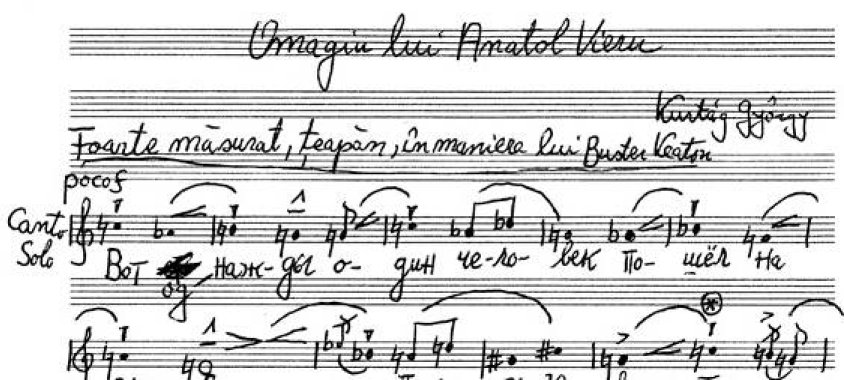 Omagiu lui Anatol Vieru
Kurtág György
Foarte măsurat, țeapăn, în maniera lui Buster Keaton
poco f
Canto Solo
Вот од наж- ды о- дин че-ло- век По- шёл На